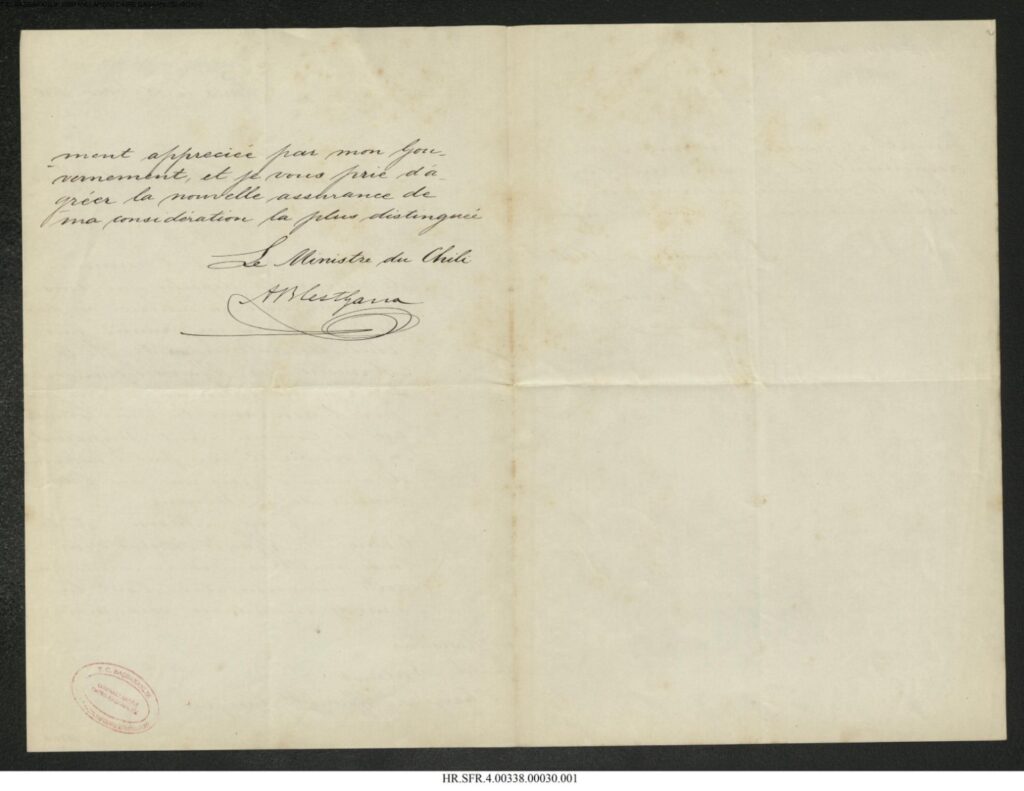 ment appreciée par mon Gou-
vernement, et je vous prie d'a-
gréer la nouvelle assurance de
ma considération la plus distinguée
Le Ministre du Chili
ABlestGana
HR.SFR.4.00338.00030.001